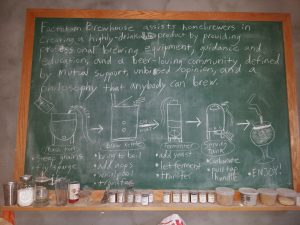 Factotum Brewhouse assists homebrewers in
creating a highly-drinkable product by providing
professional brewing equipment, guidance and
education, and a beer-loving community defined
by mutual support, unbiased opinion, and a
philosophy that anybody can brew.
Mash tun
• Steep grains
• Sparge
Brew kettle
• bring to boil
• add hops
• whirlpool
• transfer
Fermenter
• add yeast
• let ferment
• transfer
Serving
tank
• carbonate
• pull tap
handle
• ENJOY!